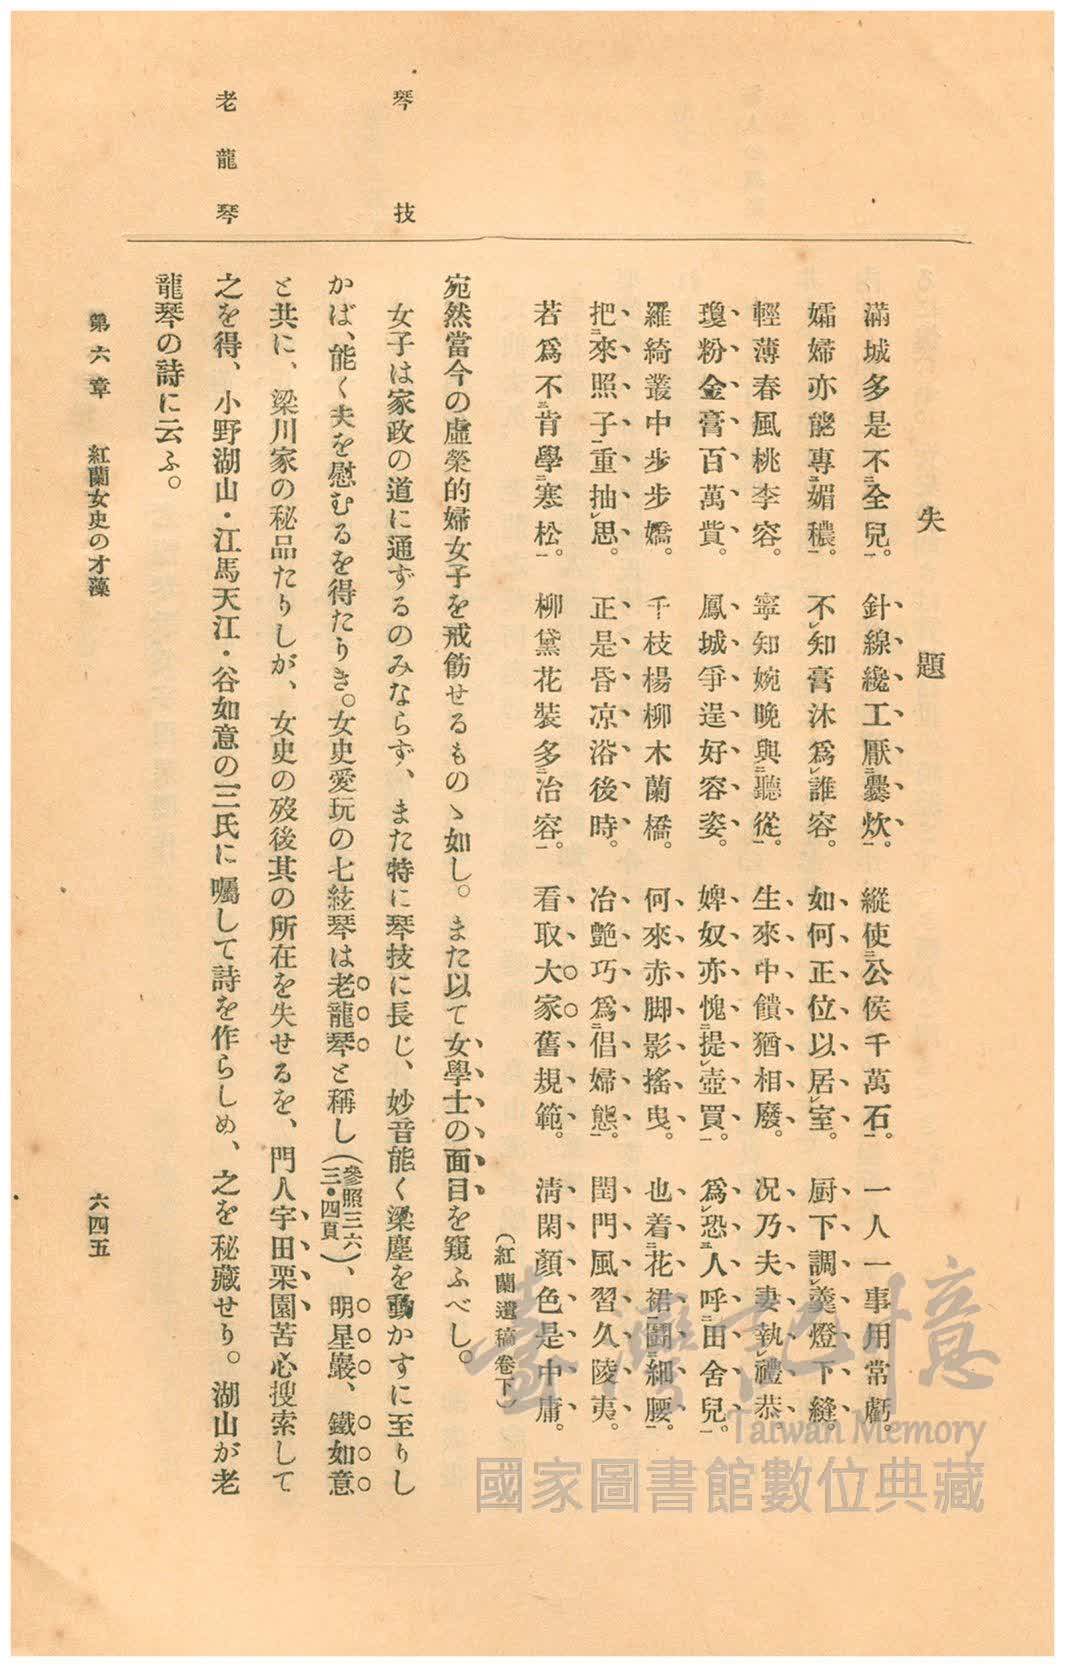 琴技
老龍琴
失題
滿城多是不全兒。針線纔工厭爨炊。縱使公侯千萬石。一人一事用常虧。
孀婦亦能專媚穠。不知膏沐爲誰容。如何正位以居室。厨下調羹燈下縫。
輕薄春風桃李容。寧知婉晚與聽從。生來中饋猶相廢。况乃夫妻執禮恭。
瓊粉金膏百萬貲。鳳城爭逞好容姿。婢奴亦愧提壺買。爲恐人呼田舍兒。
羅綺叢中步步嬌。千枝楊柳木蘭橋。何來赤脚影搖曳。也着花裙鬪細腰。
把來照子重抽思。正是昏凉浴後時。冶艷巧爲倡婦態。閨門風習久陵夷。
若爲不肯學寒松。柳黛花裝多冶容。看取大家舊規範。淸閑顏色是中庸。
(紅蘭遺稿卷下)
宛然當今の虛榮的婦女子を戒飭せるものゝ如し。また以て女學士の面目を窺ふべし。
女子は家政の道に通ずるのみならず、また特に琴技に長じ、妙音能く梁塵を動かすに至りし
かば、能く夫を慰むるを得たりき。女史愛玩の七絃琴は老龍琴と稱し(參照三六三・四頁)、明星巖、鐵如意
と共に、梁川家の秘品たりしが、女史の歿後其の所在を失せるを、門人宇田栗園苦心搜索して
之を得、小野湖山・江馬天江・谷如意の三氏に囑して詩を作らしめ、之を秘藏せり。湖山が老
龍琴の詩に云ふ。
第六章 紅蘭女史の才藻
六四五
臺灣記憶
Taiwan Memory
國家圖書館數位典藏